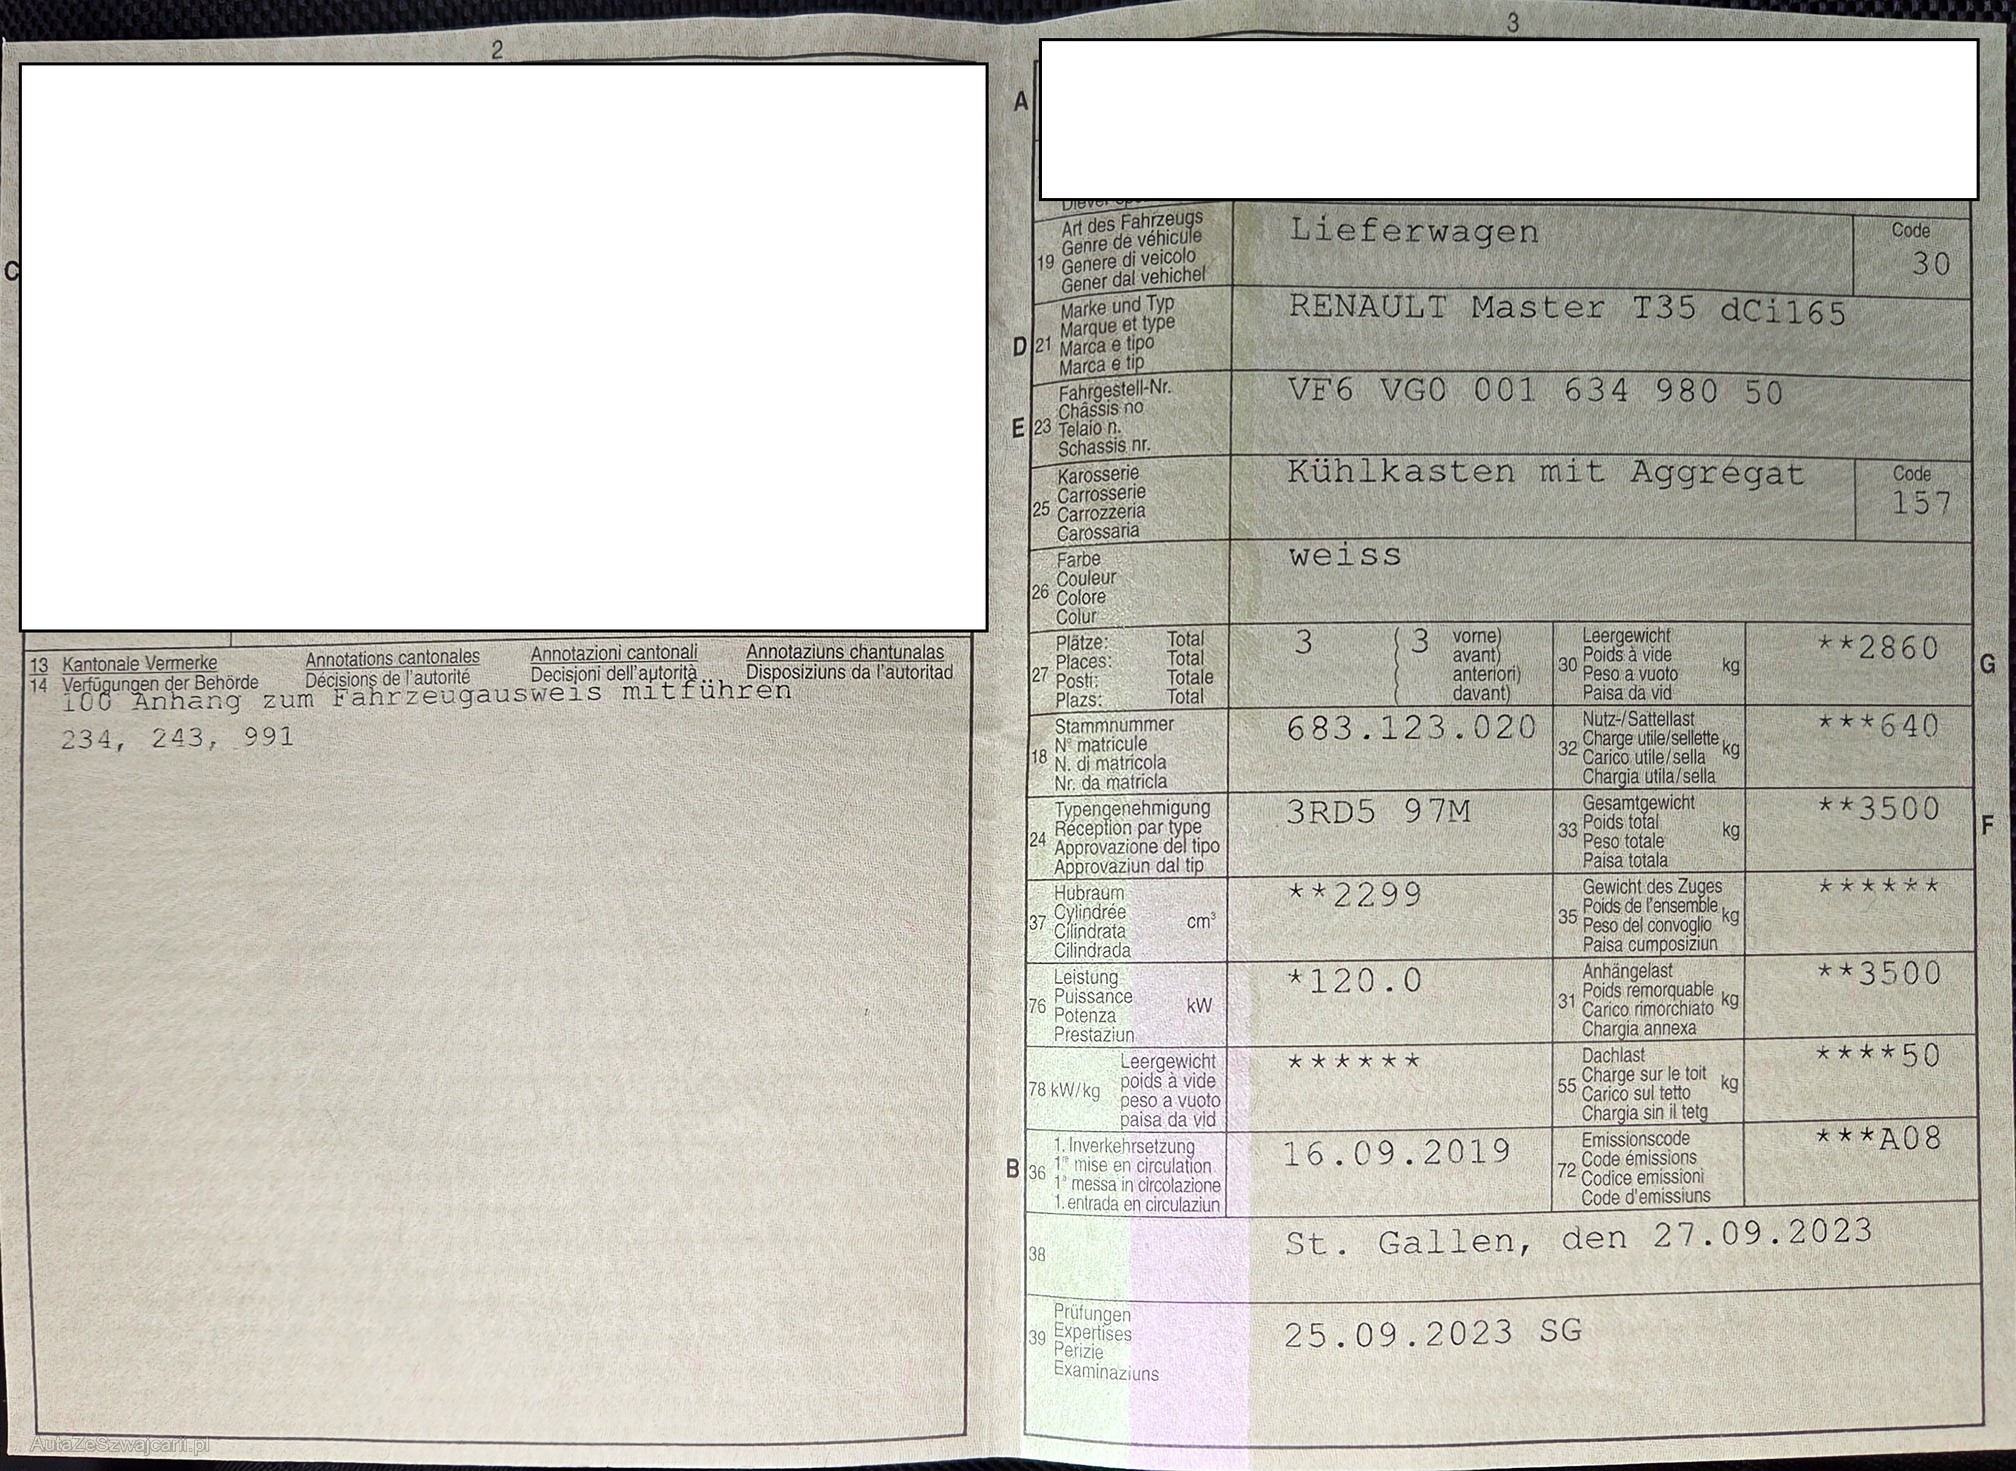 2
C
13 Kantonale Vermerke Annotations cantonales Annotazioni cantonali Annotaziuns chantunalas
14 Verfügungen der Behörde Décisions de l'autorité Decisioni dell'autorità Disposiziuns da l'autoritad
100 Anhang zum Fahrzeugausweis mitführen
234, 243, 991
3
A
19 Art des Fahrzeugs
Genre de véhicule
Genere di veicolo
Gener dal vehichel
Lieferwagen
Code
30
D 21 Marke und Typ
Marque et type
Marca e tipo
Marca e tip
RENAULT Master T35 dCi165
E 23 Fahrgestell-Nr.
Châssis no
Telaio n.
Schassis nr.
VF6 VG0 001 634 980 50
25 Karosserie
Carrosserie
Carrozzeria
Carossaria
Kühlkasten mit Aggregat
Code
157
26 Farbe
Couleur
Colore
Colur
weiss
27 Plätze: Total
Places: Total
Posti: Totale
Plazs: Total
3 (3 vorne)
avant)
anteriori)
davant)
30 Leergewicht
Poids à vide kg
Peso a vuoto
Paisa da vid
**2860
G
18 Stammnummer
N° matricule
N. di matricola
Nr. da matricla
683.123.020
32 Nutz-/Sattellast
Charge utile/sellette kg
Carico utile/sella
Chargia utila/sella
***640
24 Typengenehmigung
Réception par type
Approvazione del tipo
Approvaziun dal tip
3RD5 97M
33 Gesamtgewicht
Poids total kg
Peso totale
Paisa totala
**3500
F
37 Hubraum
Cylindrée cm³
Cilindrata
Cilindrada
**2299
35 Gewicht des Zuges
Poids de l'ensemble kg
Peso del convoglio
Paisa cumposiziun
******
76 Leistung
Puissance kW
Potenza
Prestaziun
*120.0
31 Anhängelast
Poids remorquable kg
Carico rimorchiato
Chargia annexa
**3500
78 kW/kg Leergewicht
poids à vide
peso a vuoto
paisa da vid
******
55 Dachlast
Charge sur le toit kg
Carico sul tetto
Chargia sin il tetg
****50
B 36 1. Inverkehrsetzung
1re mise en circulation
1a messa in circolazione
1. entrada en circulaziun
16.09.2019
72 Emissionscode
Code émissions
Codice emissioni
Code d'emissiuns
***A08
38 St. Gallen, den 27.09.2023
39 Prüfungen
Expertises
Perizie
Examinaziuns
25.09.2023 SG
AutaZeSzwajcarii.pl